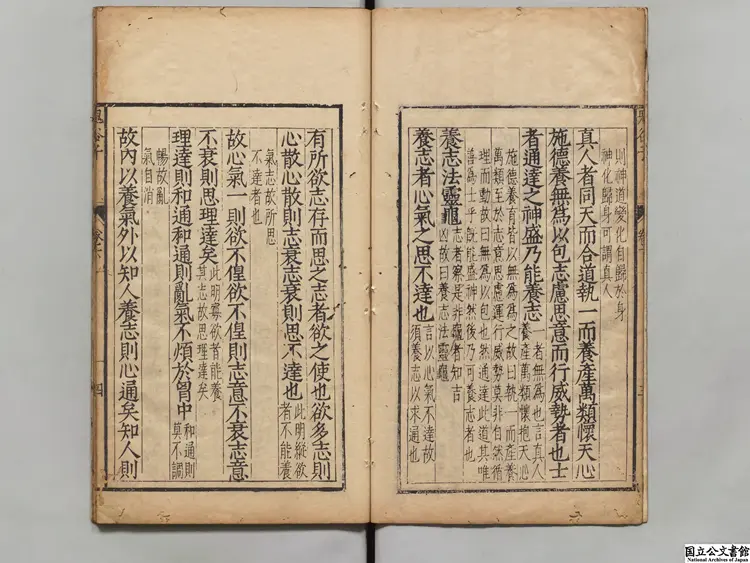 則神道變化自歸於身
神化歸身可謂真人
真人者同天而合道執一而養產萬類懷天心
施德養無為以包志慮思意而行威勢者也士
者通達之神盛乃能養志
一者無為也言真人
養產萬類懷抱天心
施德養育皆以無為為之故曰執一而產養
萬類至於志意思慮運行威勢莫非自然循
理而動故曰無為以包也然通達此道其唯
善為士乎既能盛神然後乃可養志者也
養志法靈龜
志者察是非龜者知吉
凶故曰養志法靈龜
養志者心氣之思不達也
言以心氣不達故
須養志以求通也
有所欲志存而思之志者欲之使也欲多志則
心散心散則志衰志衰則思不達也
此明縱欲
者不能養
氣志故所思
不達者也
故心氣一則欲不偟欲不偟則志意不衰志意
不衰則思理達矣
此明寡欲者能養
其志故思理達矣
理達則和通和通則亂氣不煩於胷中
和通則
莫不調
暢故亂
氣自消
故內以養氣外以知人養志則心通矣知人則
四
国立公文書館
National Archives of Japan